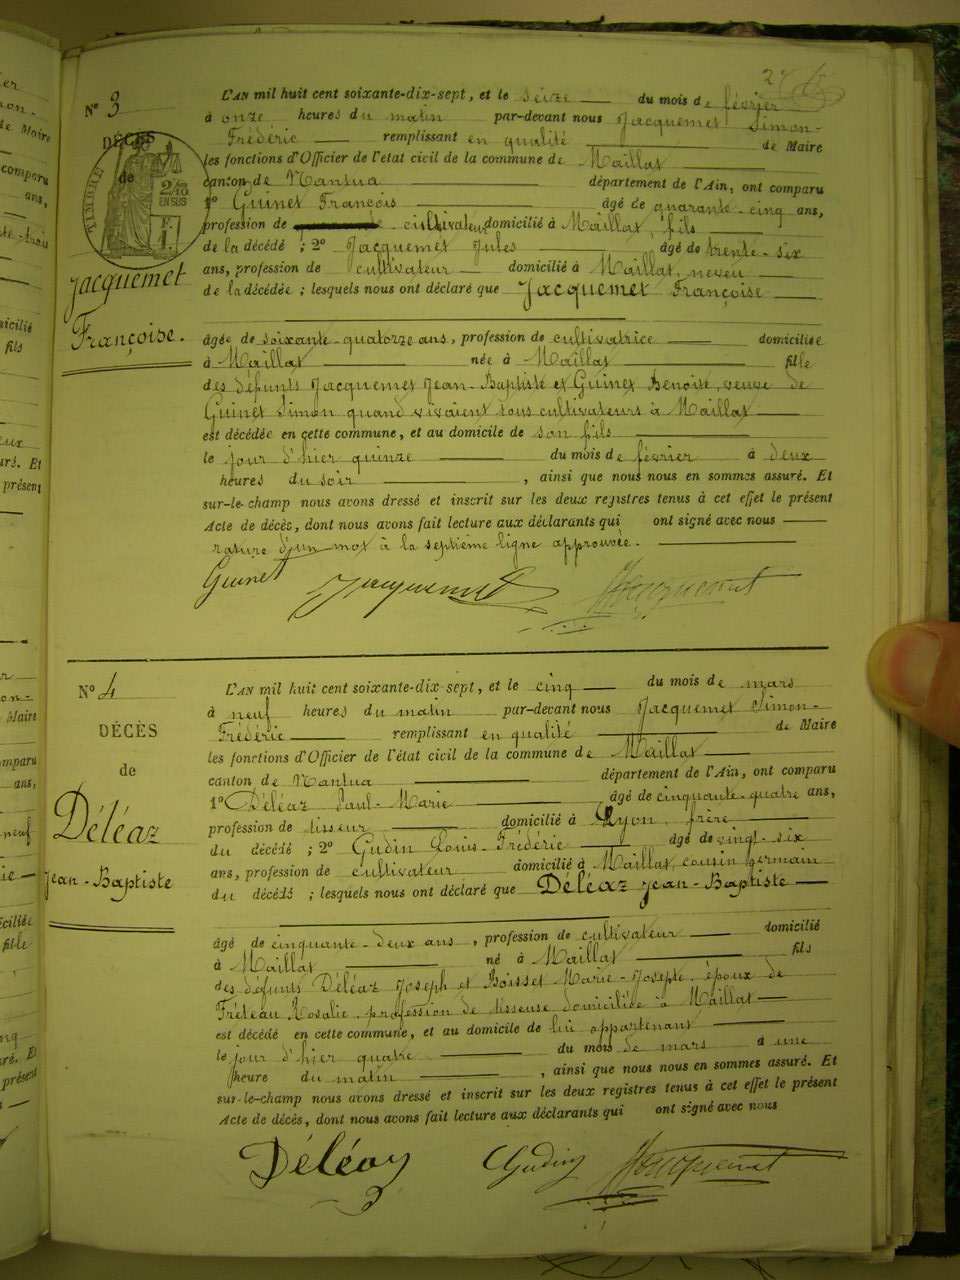 N° 3
DÉCÈS
de
TIMBRE
2/10
EN SUS
F.
1.
Jacquemet
Françoise.
L'AN mil huit cent soixante-dix-sept, et le seize du mois de février
à onze heures du matin par-devant nous Jacquemet Simon-
Frédéric remplissant en qualité de Maire
les fonctions d'Officier de l'état civil de la commune de Maillat
canton de Nantua département de l'Ain, ont comparu
1° Guinet François âgé de quarante-cinq ans,
profession de cultivateur domicilié à Maillat, fils
de la décédé ; 2° Jacquemet Jules âgé de trente-six
ans, profession de cultivateur domicilié à Maillat, neveu
de la décédée ; lesquels nous ont déclaré que Jacquemet Françoise
âgée de soixante-quatorze ans, profession de cultivatrice domiciliée
à Maillat née à Maillat fille
des défunts Jacquemet Jean-Baptiste et Guinet Benoite, veuve de
Guinet Simon quand vivaient tous cultivateurs à Maillat
est décédée en cette commune, et au domicile de son fils
le jour d'hier quinze du mois de février à deux
heures du soir, ainsi que nous nous en sommes assuré. Et
sur-le-champ nous avons dressé et inscrit sur les deux registres tenus à cet effet le présent
Acte de décès, dont nous avons fait lecture aux déclarants qui ont signé avec nous
rature d'un mot à la septième ligne approuvée.
Guinet Jacquemet Jacquemet
N° 4
DÉCÈS
de
Déléaz
Jean-Baptiste
L'AN mil huit cent soixante-dix-sept, et le cinq du mois de mars
à neuf heures du matin par-devant nous Jacquemet Simon-
Frédéric remplissant en qualité de Maire
les fonctions d'Officier de l'état civil de la commune de Maillat
canton de Nantua département de l'Ain, ont comparu
1° Déléaz Paul-Marie âgé de cinquante-quatre ans,
profession de tisseur domicilié à Lyon, frère
du décédé ; 2° Gudin Louis-Frédéric âgé de vingt-six
ans, profession de cultivateur domicilié à Maillat, cousin germain
du décédé ; lesquels nous ont déclaré que Déléaz Jean-Baptiste
âgé de cinquante-deux ans, profession de cultivateur domicilié
à Maillat né à Maillat fils
des défunts Déléaz Joseph et Boisset Marie-Josepte, époux de
Fréteau Rosalie, profession de tisseuse domiciliée à Maillat
est décédé en cette commune, et au domicile de lui appartenant
le jour d'hier quatre du mois de mars à une
heure du matin, ainsi que nous nous en sommes assuré. Et
sur-le-champ nous avons dressé et inscrit sur les deux registres tenus à cet effet le présent
Acte de décès, dont nous avons fait lecture aux déclarants qui ont signé avec nous
Déléaz Gudin Jacquemet